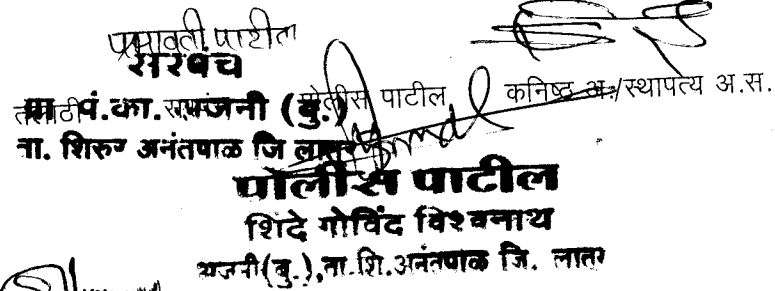 प्रभावती पाटील
सरपंच
तलाठी पं.का. अजनी (बु.) पोलीस पाटील कनिष्ठ अ./स्थापत्य अ.स.
ता. शिरुर अनंतपाळ जि लातूर
पोलीस पाटील
शिंदे गोविंद विश्वनाथ
अजनी(बु.),ता.शि.अनंतपाळ जि. लातूर